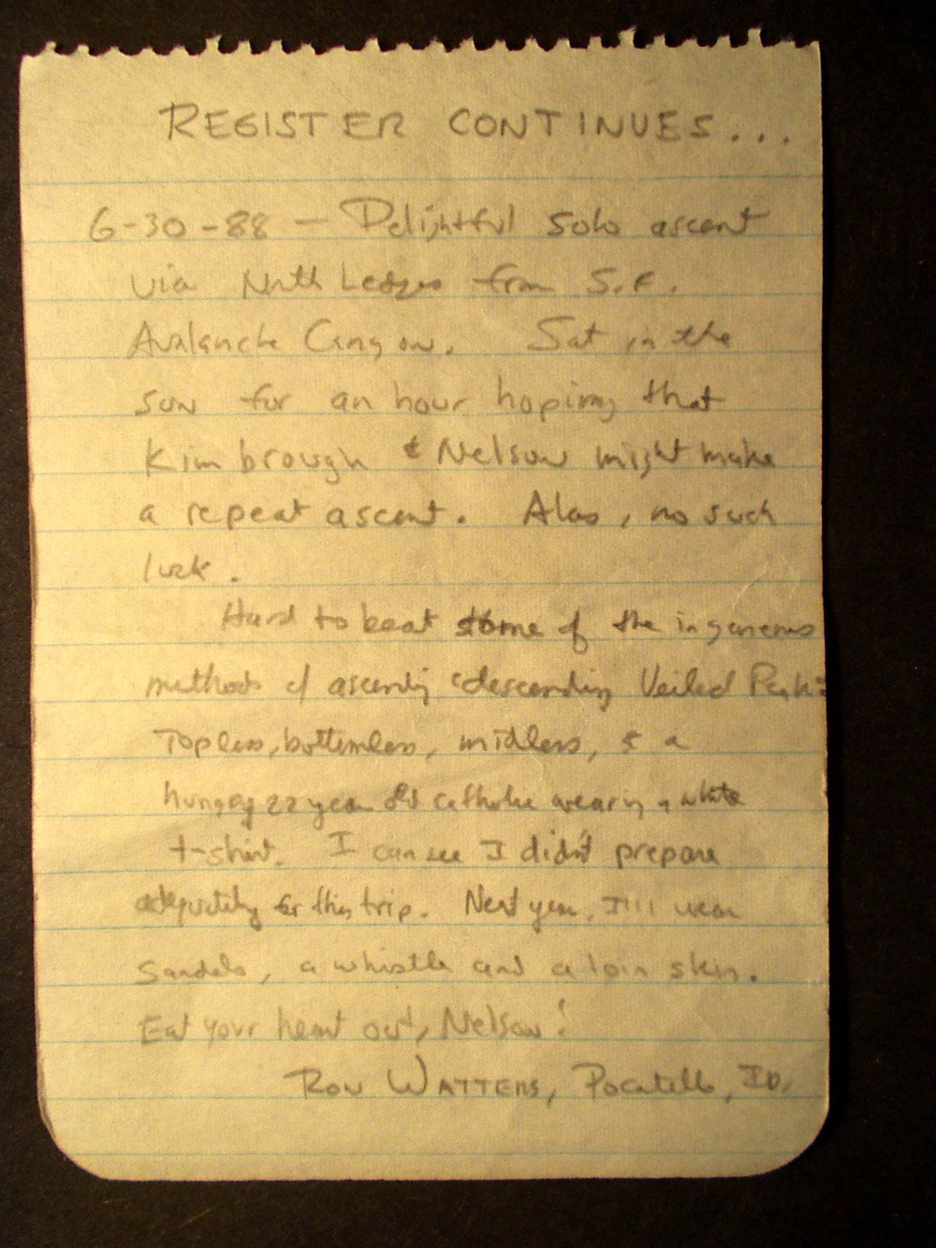 REGISTER CONTINUES...
6-30-88 - Delightful solo ascent
via North Ledges from S.F.
Avalanche Canyon. Sat in the
sun for an hour hoping that
Kimbrough & Nelson might make
a repeat ascent. Alas, no such
luck.
Hard to beat some of the ingenious
methods of ascending & descending Veiled Peak:
Topless, bottomless, midless, & a
hungry 22 year old catholic wearing a white
t-shirt. I can see I didn't prepare
adequately for this trip. Next year, I'll wear
Sandals, a whistle and a loin skin.
Eat your heart out, Nelson!
RON WATTERS, Pocatello, ID.